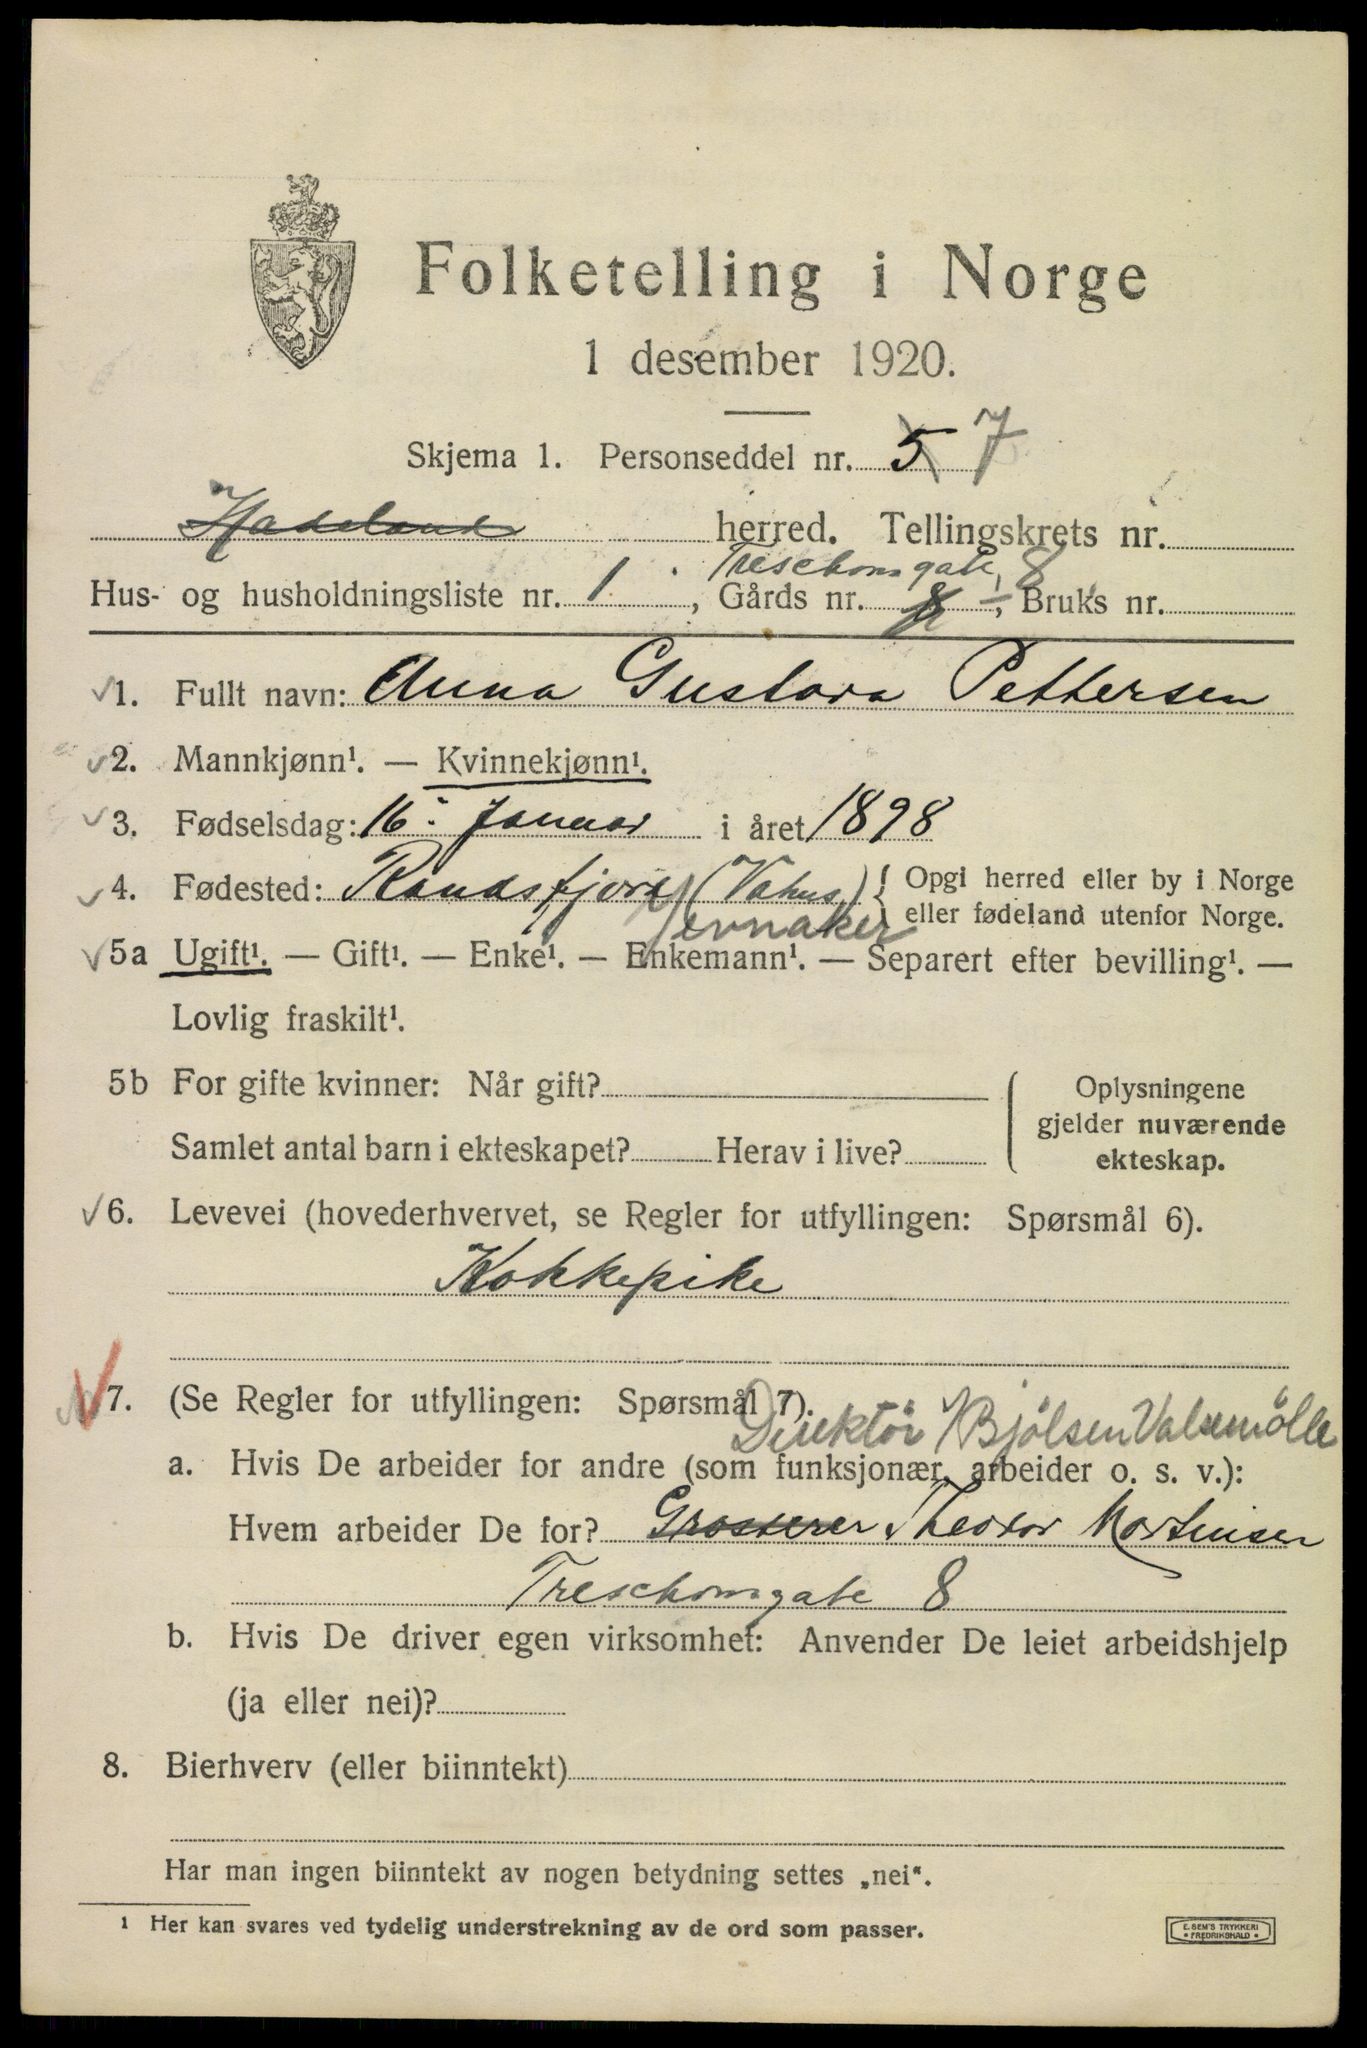 Folketelling i Norge
1 desember 1920.
Skjema 1. Personseddel nr. 5 7
Hadeland herred. Tellingskrets nr.
Treschowsgate 8
Hus- og husholdningsliste nr. 1, Gårds nr. 8, Bruks nr.
1. Fullt navn: Anna Gustava Pettersen
2. Mannkjønn¹. — Kvinnekjønn¹.
3. Fødselsdag: 16. Januar i året 1898
4. Fødested: Randsfjord (Vahus) { Opgi herred eller by i Norge
Jevnaker eller fødeland utenfor Norge.
5a Ugift¹. — Gift¹. — Enke¹. — Enkemann¹. — Separert efter bevilling¹. —
Lovlig fraskilt¹.
5b For gifte kvinner: Når gift? ( Oplysningene
gjelder nuværende
Samlet antal barn i ekteskapet? Herav i live? ekteskap.
6. Levevei (hovederhvervet, se Regler for utfyllingen: Spørsmål 6).
Kokkepike
7. (Se Regler for utfyllingen: Spørsmål 7).
Direktör v/Bjölsen Valsemölle
a. Hvis De arbeider for andre (som funksjonær, arbeider o. s. v.):
Hvem arbeider De for? Grosserer Theodor Martinsen
Treschowsgate 8
b. Hvis De driver egen virksomhet: Anvender De leiet arbeidshjelp
(ja eller nei)?
8. Bierhverv (eller biinntekt)
Har man ingen biinntekt av nogen betydning settes „nei“.
1 Her kan svares ved tydelig understrekning av de ord som passer.
E. SEM'S TRYKKERI
• FREDRIKSHALD •